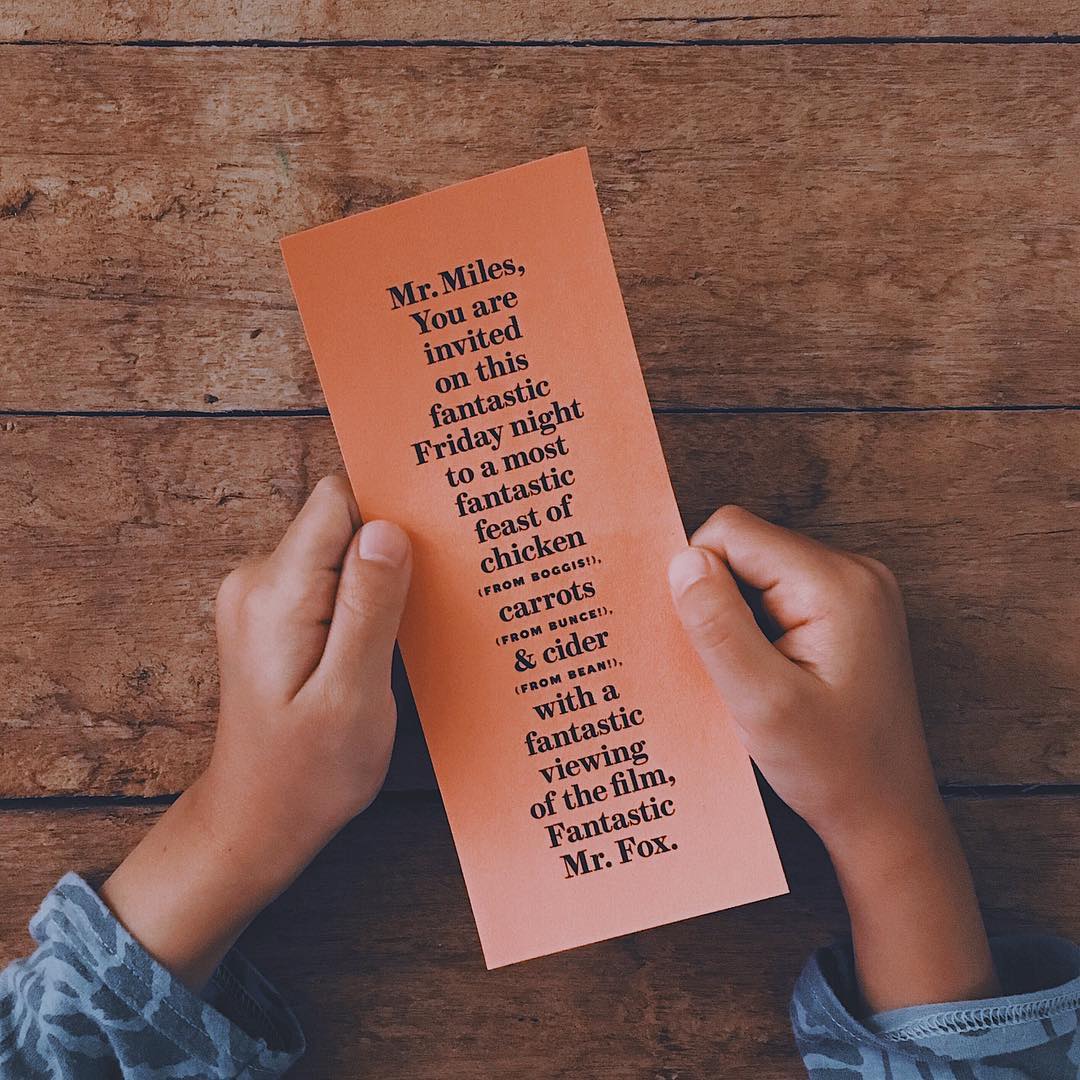 Mr. Miles,
You are
invited
on this
fantastic
Friday night
to a most
fantastic
feast of
chicken
(FROM BOGGIS!),
carrots
(FROM BUNCE!),
& cider
(FROM BEAN!),
with a
fantastic
viewing
of the film,
Fantastic
Mr. Fox.